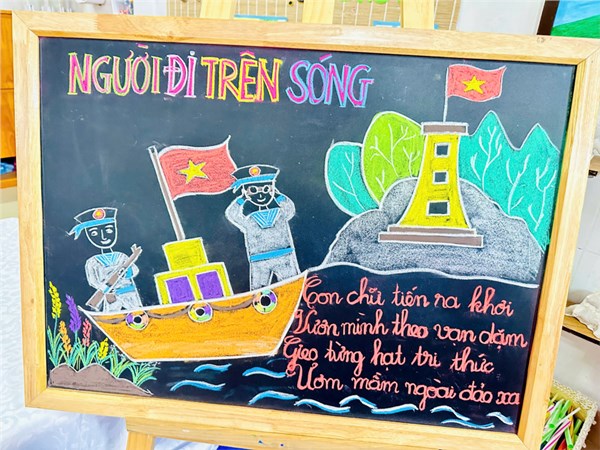 NGƯỜI ĐI TRÊN SÓNG
Con chữ tiến ra khơi
Vươn mình theo vạn dặm
Gieo từng hạt tri thức
Ươm mầm ngoài đảo xa